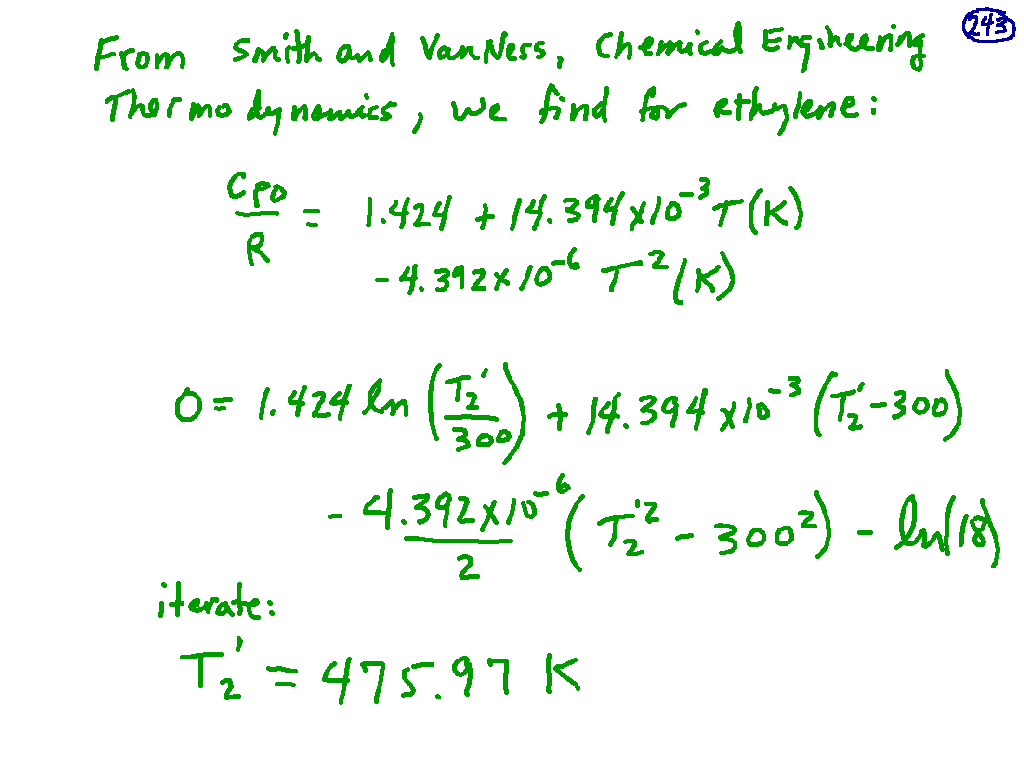 243
From Smith and VanNess, Chemical Engineering
Thermodynamics, we find for ethylene:
CP0/R = 1.424 + 14.394x10^-3 T(K)
- 4.392x10^-6 T^2(K)
0 = 1.424 ln (T2'/300) + 14.394x10^-3 (T2'-300)
- 4.392x10^-6/2 (T2'^2 - 300^2) - ln(18)
iterate:
T2' = 475.97 K